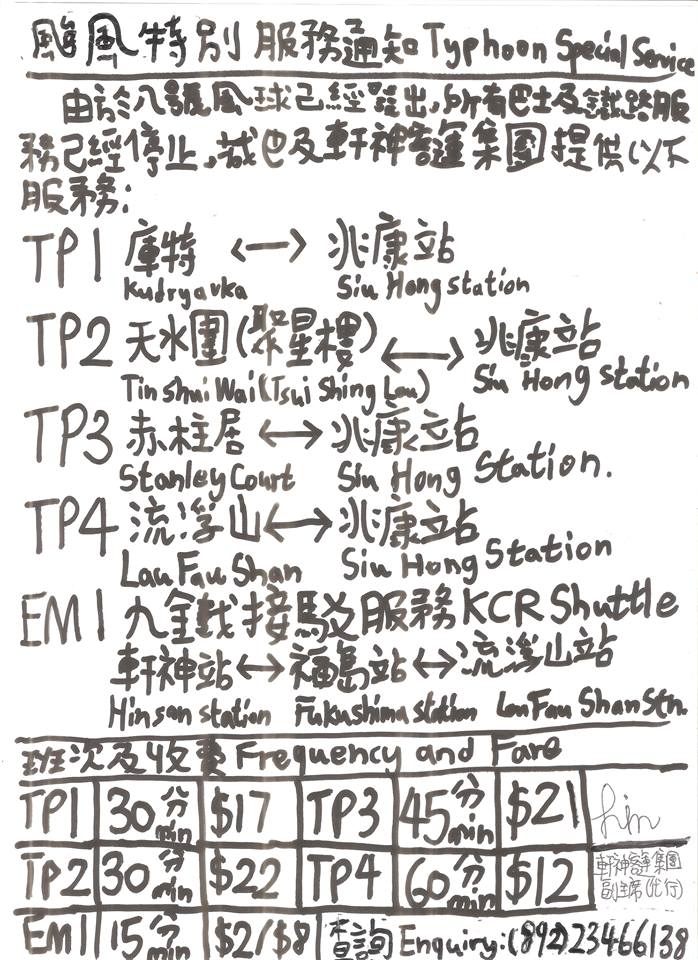 颱風特別服務通知 Typhoon Special Service
由於八號風球已經發出,所有巴士及鐵路服
務已經停止,城巴及軒神護運集團提供以下
服務:
TP1 庫特 <—> 兆康站
Kudryavka Siu Hong station
TP2 天水圍(聚星樓) <—> 兆康站
Tin Shui Wai (Tsui Shing Lau) Siu Hong station
TP3 赤柱居 <—> 兆康站
Stanley Court Siu Hong Station.
TP4 流浮山 <—> 兆康站
Lau Fau Shan Siu Hong Station
EM1 九鐵接駁服務 KCR Shuttle
軒神站 <—> 福島站 <—> 流浮山站
Hinsan station Fukushima station Lau Fau Shan Stn.
班次及收費 Frequency and Fare
TP1 30分min $17 TP3 45分min $21
TP2 30分min $22 TP4 60分min $12
副主席(代行)
EM1 15分min $2/$8 查詢 Enquiry:(892)23466138